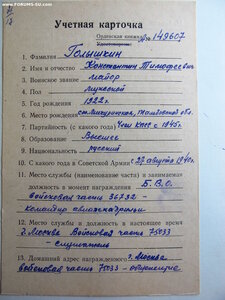 www.FORUMS-SU.com
Учетная карточка
Орденская книжка № 149607
Удостоверение
1. Фамилия Голышкин
2. Имя и отчество Константин Тимофеевич
3. Воинское звание майор
4. Пол мужской
5. Год рождения 1922 г.
6. Место рождения ст. Мичуринск, Тамбовской обл.
7. Партийность (с какого года) Член КПСС с 1945 г.
8. Образование Высшее
9. Национальность русский
10. С какого года в Советской Армии с 27 августа 1940 г.
11. Место службы (наименование части) и занимаемая
должность в момент награждения Б.В.О.
войсковая часть 36732 -
командир авиаэскадрильи
12. Место службы и должность в настоящее время
г. Москва Войсковая часть 75033 -
слушатель
13. Домашний адрес награжденного г. Москва
Войсковая часть 75033 -